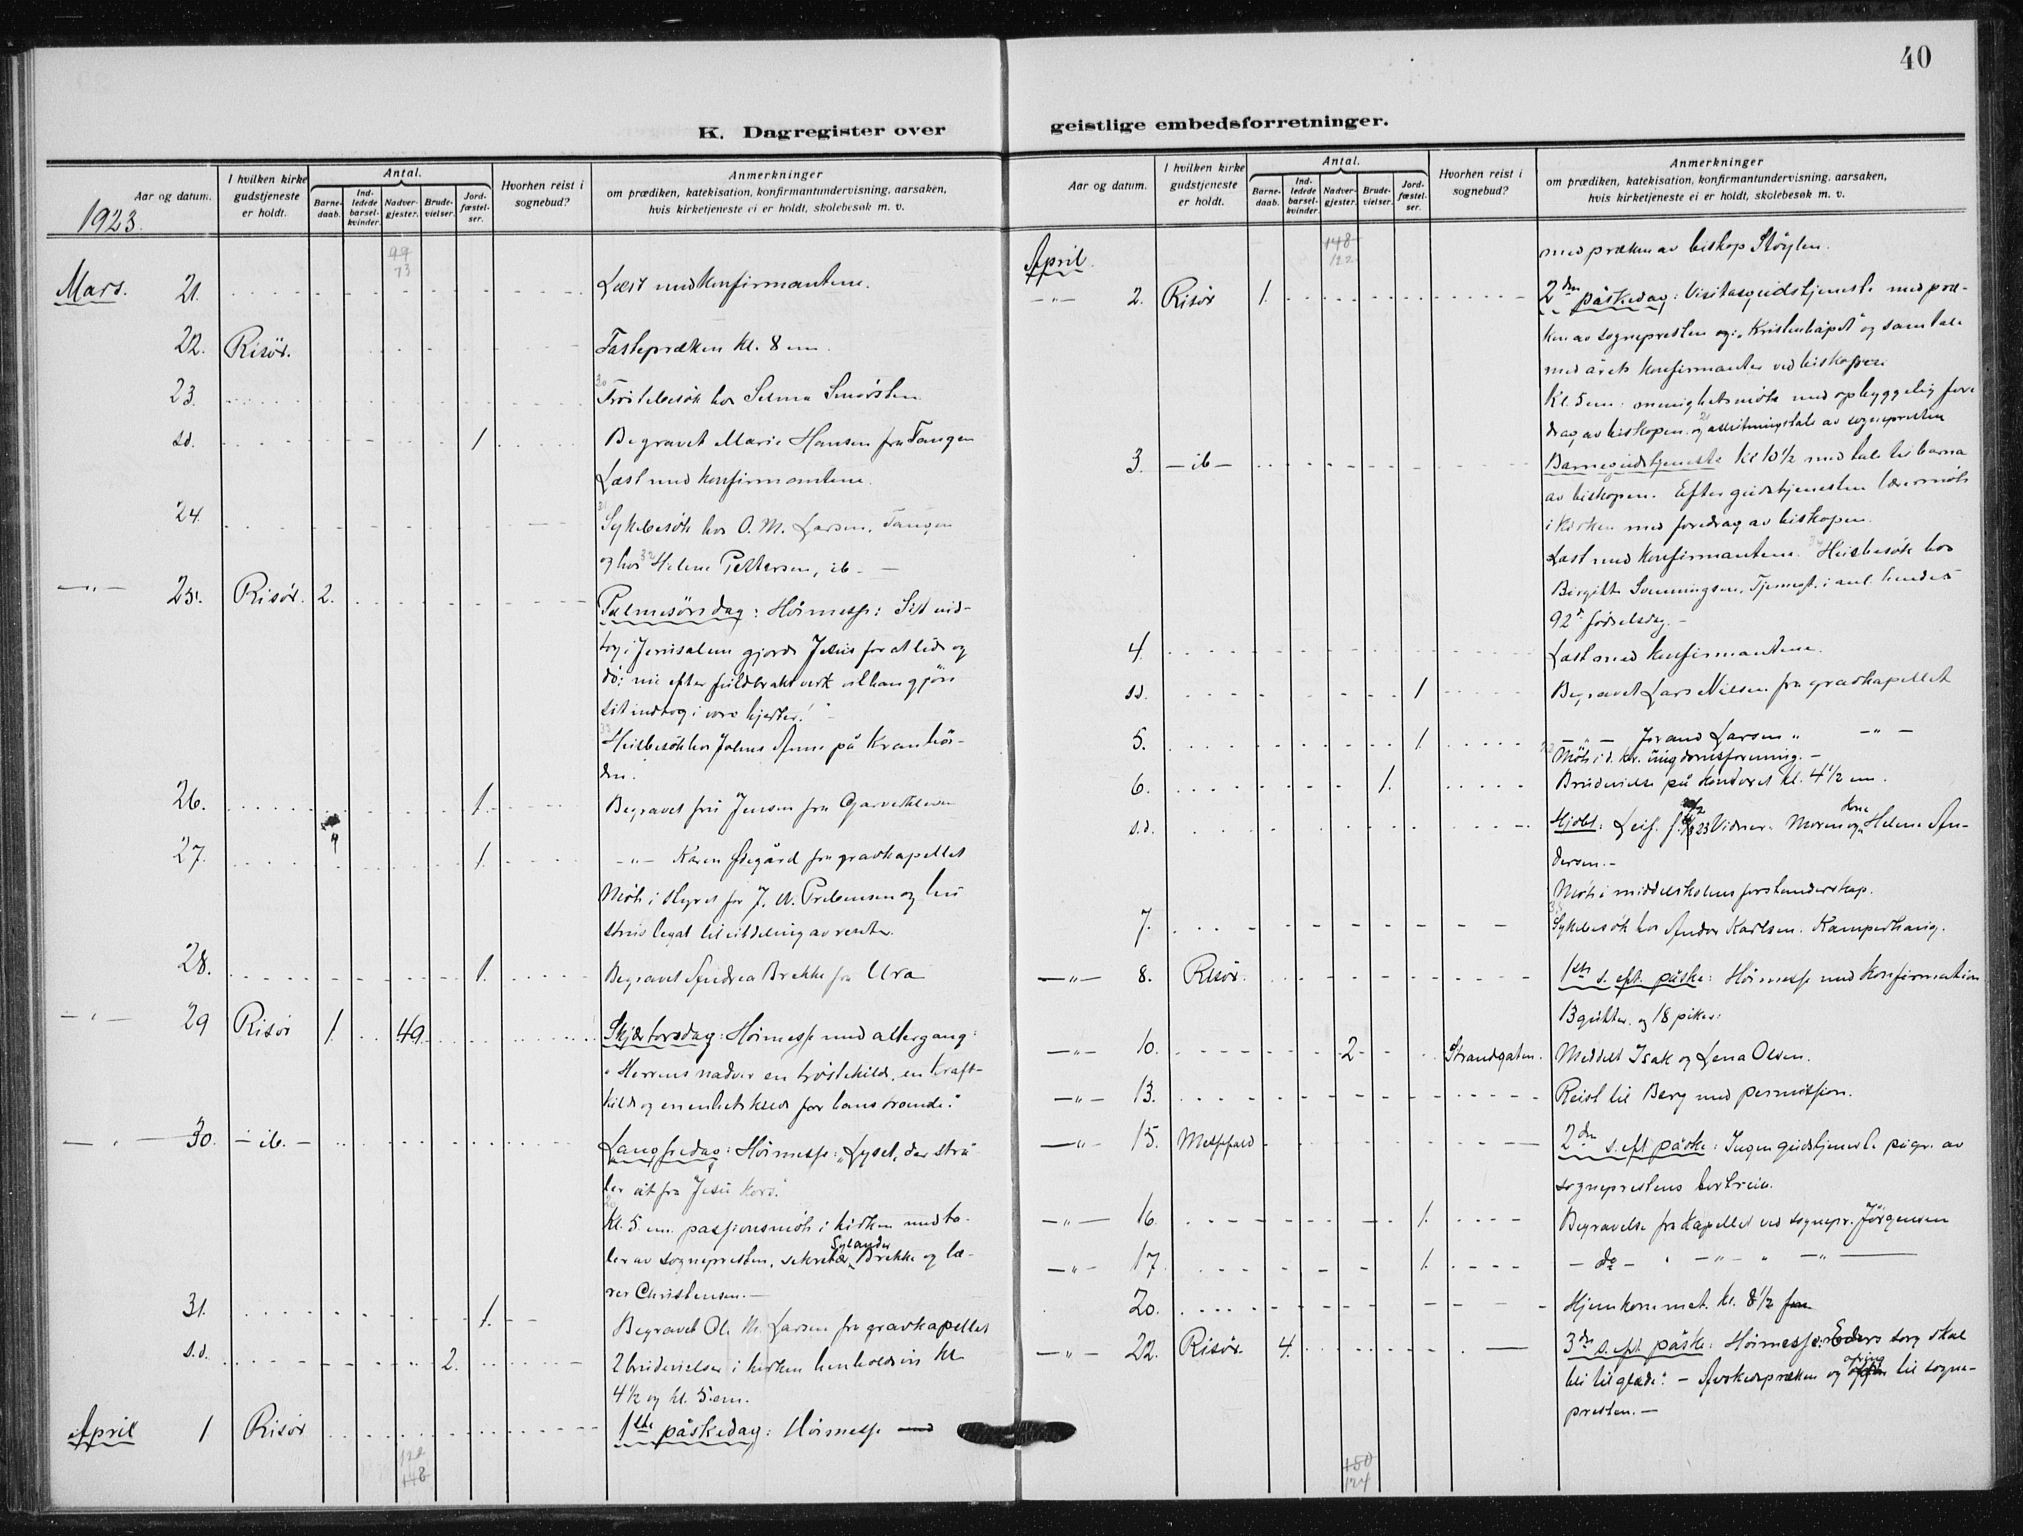 40
K. Dagregister over
geistlige embedsforretninger.
Aar og datum.
I hvilken kirke gudstjeneste er holdt.
Antal.
Barne-daab.
Ind-ledede barsel-kvinder.
Nadver-gjester.
Brude-vielser.
Jord-fæstel-ser.
Hvorhen reist i sognebud?
Anmerkninger
om prædiken, katekisation, konfirmantundervisning, aarsaken,
hvis kirketjeneste ei er holdt, skolebesøk m. v.
1923.
99
73
Mars. 21. Læst med konfirmantene.
22. Risør. Fastepræken kl. 8 em.
23. 30 Trøstebesøk hos Selma
sd. 1 Begravet Marie Hansen fra Tangen
Læst med konfirmantene.
24. 31 Sykebesøk hos O. M. Larsen, Tangen
og hos 32 Helene Pettersen, ib. —
— „ — 25. Risør. 2. Palmesøndag: Høimesse: Sit ind-
tog i Jerusalem gjorde Jesus for at lide og
dø; nu efter fuldbrakt verk vil han gjøre
sit indtog i vore hjerter!"
33 Husbesøk hos på
den.
26. 1. Begravet fru Jensen fra
27. 1. — „ — Karen Ødegård fra gravkapellet
Møte i styret for J. W. Prebensen og hu-
strus legat til utdeling av renter.
28. 1. Begravet Andrea Brekke fra Ura
— „ — 29 Risør 1. 49. Skjærtorsdag: Høimesse med altergang:
„Herrens nadver en trøstekilde, en kraft-
kilde og en enhetskilde for hans troende."
— „ — 30. — ib. — Langfredag: Høimesse: „Lyset, der strå-
ler ut fra Jesu kors."
20 Kl. 5 em. passionsmøte i kirken med ta-
ler av sognepresten, sekretær Sylander Brekke og læ-
rer Christensen. —
31. 1. Begravet Ole M. Larsen fra gravkapellet
s.d. 2. 2 brudevielser i kirken henholdsvis kl.
4½ og kl. 5 em.
April 1 Risør 1ste påskedag: Høimesse med
122
148
Aar og datum.
I hvilken kirke gudstjeneste er holdt.
Antal.
Barne-daab.
Ind-ledede barsel-kvinder.
Nadver-gjester.
Brude-vielser.
Jord-fæstel-ser.
Hvorhen reist i sognebud?
Anmerkninger
om prædiken, katekisation, konfirmantundervisning, aarsaken,
hvis kirketjeneste ei er holdt, skolebesøk m. v.
148
122
April. med præken av biskop Støylen.
— „ — 2. Risør 1. 2den påskedag: Visitasgudstjeneste med præ-
ken av sognepresten og: „Kristenhåpet" og samtale
med årets konfirmanter ved biskopen
Kl. 5 em. menighetsmøte med opbyggelig fore-
drag av biskopen og 21 avslutningstale av sognepresten
3. — ib — Barnegudstjeneste kl. 10½ med tale til barna
av biskopen. Efter gudstjenesten lærermøte
i kirken med foredrag av biskopen.
Læst med konfirmantene. 34 Husbesøk hos
Birgitte Sonningsen, Tjennsgt. i anl. hendes
92 d fødselsdag. —
4. Læst med konfirmantene.
sd. 1 Begravet Lars Nielsen fra gravkapellet
5. 1. — „ — Larsen „ — „ —
Møte i d. kr. ungdomsforening. —
6. 1. Brudevielse på kontoret kl. 4½ em.
s.d. Hjdbt: Leif, f. 23 Vidner: Moren og kone Helene An-
dersen. —
Møte i middelskolens forstanderskap.
7. 35 Sykebesøk hos Andor Karlsen. Kamperhaug.
— „ — 8. Risør. 1ste s. eft. påske: Høimesse med konfirmation
13 gutter og 18 piker.
— „ — 10. 2 Strandgaten. Meddelt Isak og Lena Olsen.
— „ — 13. Reist til Berg med permission.
— „ — 15. Messefald 2den s. eft påske: Ingen gudstjeneste på gr. av
sogneprestens bortreise.
— „ — 16. 1. Begravelse fra kapellet ved sognepr. Jørgensen
— „ — 17. 1. — do — „ — „ — „ — „ —
20. Hjemkommet kl. 8½ fm
— „ — 22. Risør. 4. 3die s. eft påske: Høimesse: Eders sorg skal
bli til glæde". — Avskedspræken og ofring til sogne-
presten. —
150
124